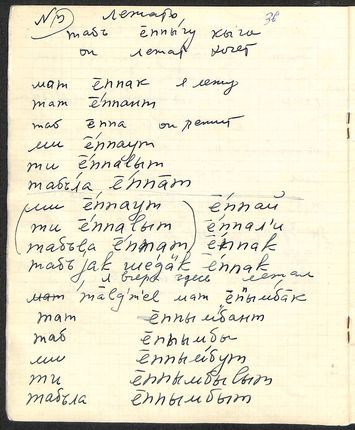 N 5) лежать 36
табъ ёппы́гу кыга
он лежат хочет
мат ёппак я лежу
тат ёппант
таб ёппа он лежит
ми ёппаут
ти ёппалыт
табы́ла ёппа̄т
(ми ёппаут) ёппай
(ти ёппалыт) ёппал'и
(табъла ёппат) ёппак
табъ jak ёппак
я вчера здесь лежал
мат мат ёппымба̄к
тат ёппымбант
таб ёппымбы
ми ёппымбут
ти ёппымбылыт
табъла ёппымбыт